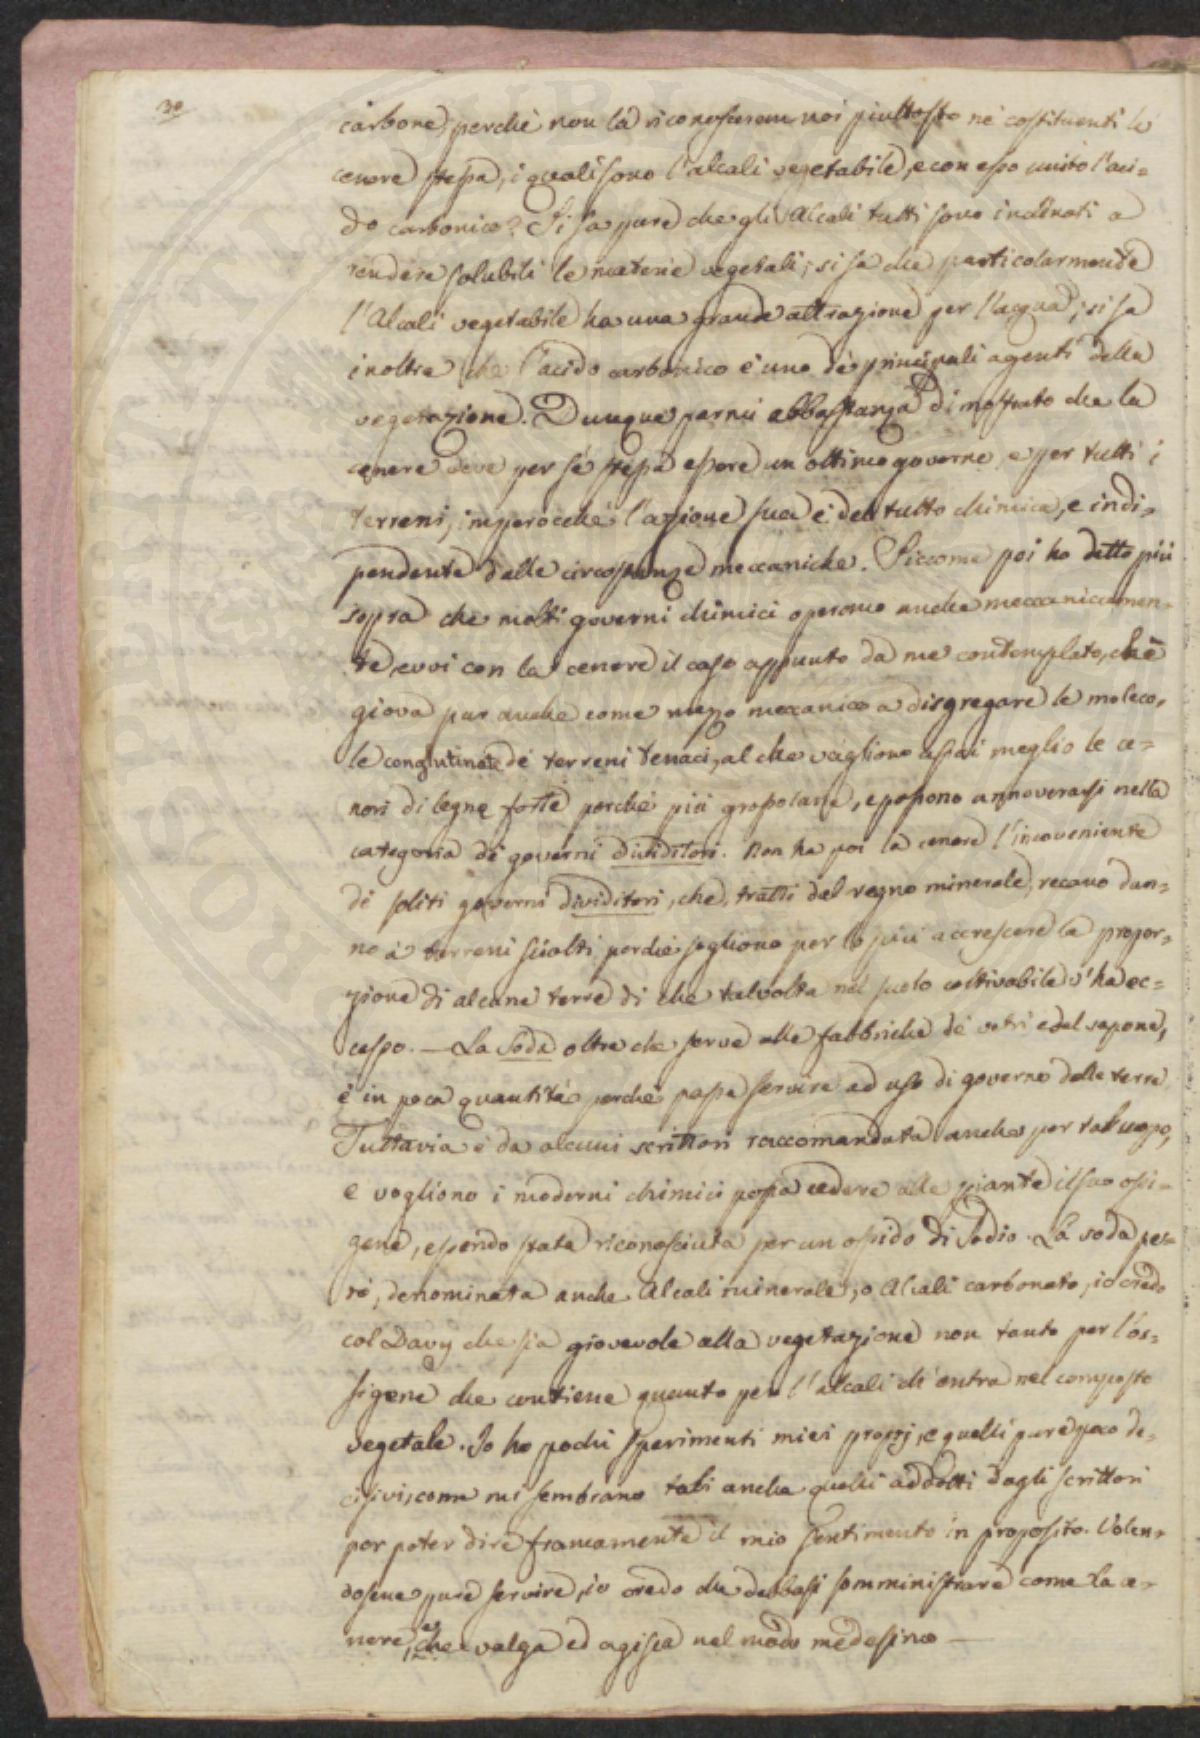 30
carbone, perchè non la riconosceremo noi piuttosto nè costituenti la
cenere stessa, i quali sono l'alcali vegetabile, e con esso unito l'aci-
do carbonico? Si sa pure che gli Alcali tutti sono inclinati a
rendere solubili le materie vegetali; si sa che particolarmente
l'Alcali vegetabile ha una grande attrazione per l'acqua; si sa
inoltre che l'acido carbonico è uno dè principali agenti della
vegetazione. Dunque parmi abbastanza dimostrato che la
cenere deve per sè stessa essere un ottimo governo, e per tutti i
terreni, imperocchè l'azione sua è del tutto chimica, e indi-
pendente dalle circostanze meccaniche. Siccome poi ho detto più
sopra che molti governi chimici operano anche meccanicamen-
te, evvi con la cenere il caso appunto da me contemplato, chè
giova pur anche come mezzo meccanico a disgregare le moleco-
le conglutinate dè terreni tenaci, al che vagliono assai meglio le ce-
neri di legne forte perchè più grossolane, e possono annoverarsi nella
categoria dè governi dividitori. Non ha poi la cenere l'incoveniente
dè soliti governi dividitori, che, tratti dal regno minerale, recano dan-
no à terreni sciolti perchè sogliono per lo più accrescere la propor-
zione di alcune terre di che talvolta nel suolo coltivabile v'ha ec-
cesso. — La Soda oltre che serve alle fabbriche dè vetri e del sapone,
è in poca quantità perchè possa servire ad uso di governo delle terre.
Tuttavia è da alcuni scrittori raccomandata anche per tal uopo,
e vogliono i moderni chimici possa cedere alle piante il suo ossi-
gene, essendo stata riconosciuta per un ossido di Sodio. La soda pe-
rò, denominata anche Alcali minerale, o Alcali carbonato, io credo
col Davy che sia giovevole alla vegetazione non tanto per l'os-
sigene che contiene quanto per l'alcali ch'entra nel composto
vegetale. Io ho pochi sperimenti miei proprj, e quelli pure poco de-
cisivi, come mi sembrano tali anche quelli addotti dagli scrittori
per poter dire francamente il mio sentimento in proposito. Volen-
dosene pure servire, io credo che debbasi somministrare come la ce-
nere, che valga ed agisca nel modo medesimo —